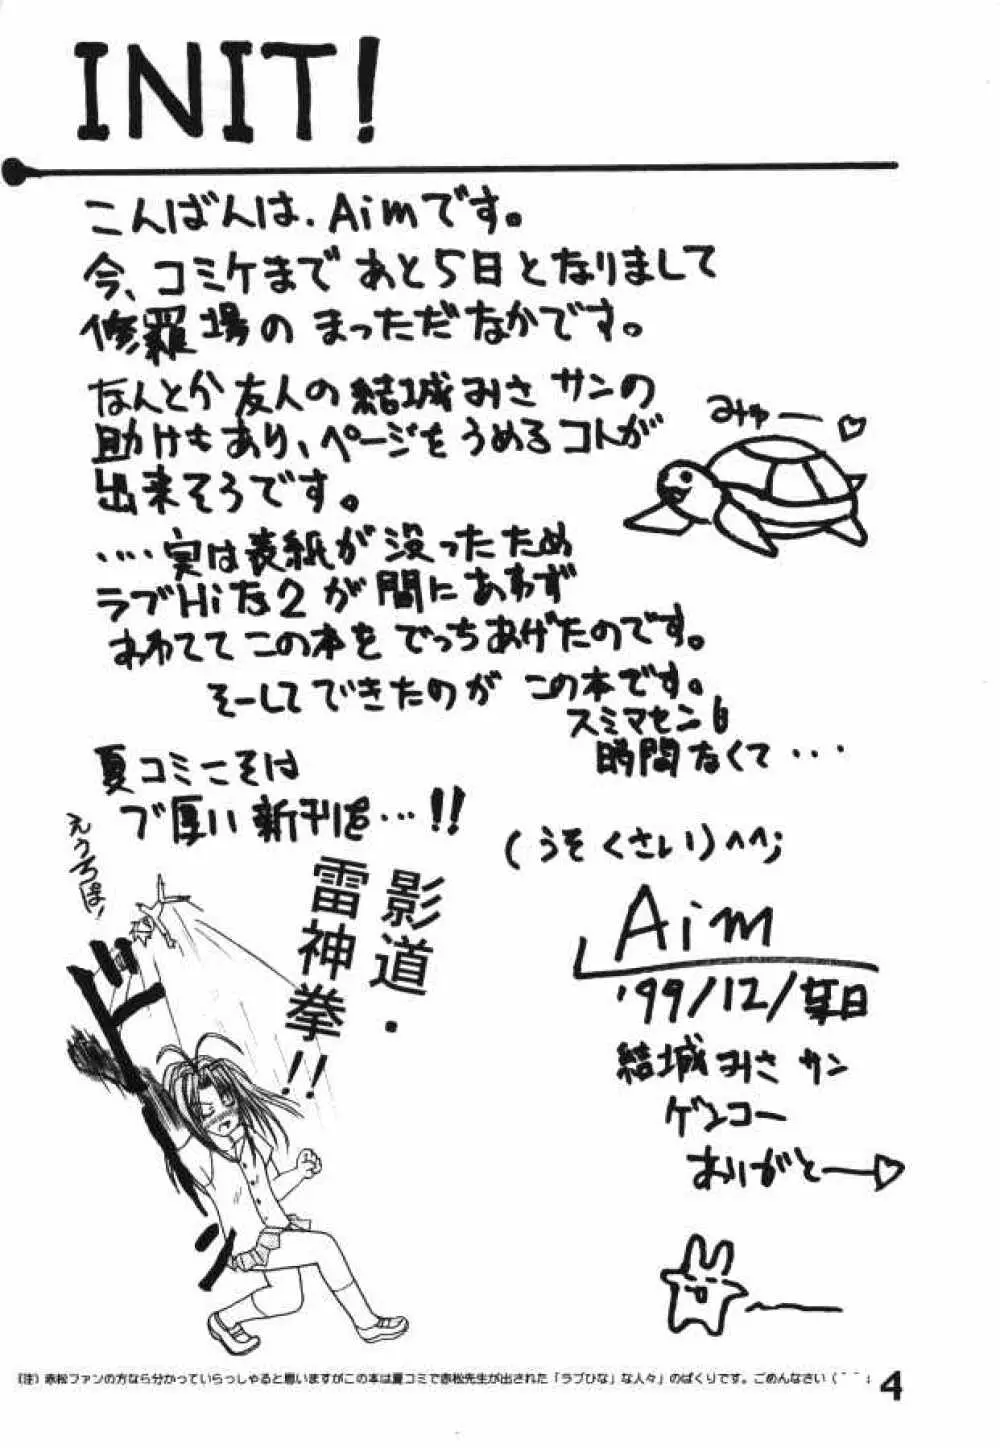 INIT!
こんばんは、Aimです。
今、コミケまであと5日となりまして
修羅場のまっただなかです。
なんとか友人の結城みさサンの
助けもあり、ページをうめるコトが
出来そうです。
みゅー♡
‥‥実は表紙が没ったため
ラブHiな2が間にあわず
あわててこの本をでっちあげたのです。
そーしてできたのがこの本です。
スミマセン6
時間なくて‥‥
夏コミこそは
ブ厚い新刊を…!!
(うそくさい)^^;
えうちぽ!
影道・
雷神拳!!
ドーン
Aim
'99/12/某日
結城みさサン
ゲンコー
ありがとー♡
(注)赤松ファンの方なら分かっていらっしゃると思いますがこの本は夏コミで赤松先生が出された「ラブひな」な人々」のぱくりです。ごめんなさい(^^;
4